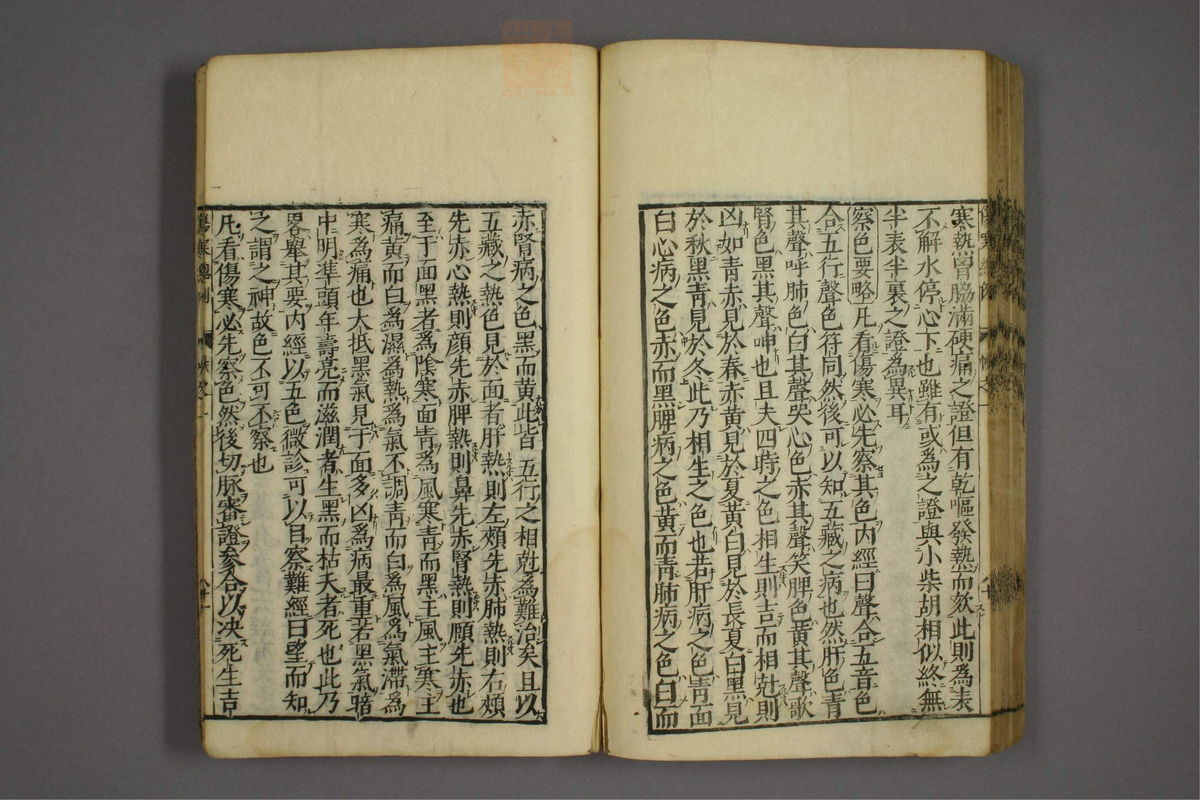 寒熱胷脇滿硬痛之證但有乾嘔發熱而欬此則為表
不解水停心下也雖有或為之證與小柴胡相似終無
半表半裏之證為異耳
察色要略凡看傷寒必先察其色内經曰聲合五音色
合五行聲色符同然後可以知五藏之病也然肝色青
其聲呼肺色白其聲哭心色赤其聲笑脾色黄其聲歌
腎色黒其聲呻也且夫四時之色相生則吉而相尅則
凶如青赤見於春赤黄見於夏黄白見於長夏白黒見
於秋黒青見於冬此乃相生之色也若肝病之色青而
白心病之色赤而黒脾病之色黄而青肺病之色白而
赤腎病之色黒而黄此皆五行之相尅為難治矣且以
五藏之熱色見於面者肝熱則左頰先赤肺熱則右頰
先赤心熱則顔先赤脾熱則鼻先赤腎熱則頤先赤也
至于面黒者為陰寒面青為風寒青而黒主風主寒主
痛黄而白為濕為熱為氣不調青而白為風為氣滯為
寒為痛也大抵黒氣見于面多凶為病最重若黒氣暗
中明準頭年壽亮而滋潤者生黒而枯夭者死也此乃
畧舉其要内經以五色微診可以目察難經曰望而知
之謂之神故色不可不察也
凡看傷寒必先察色然後切脉審證參合以决死生吉